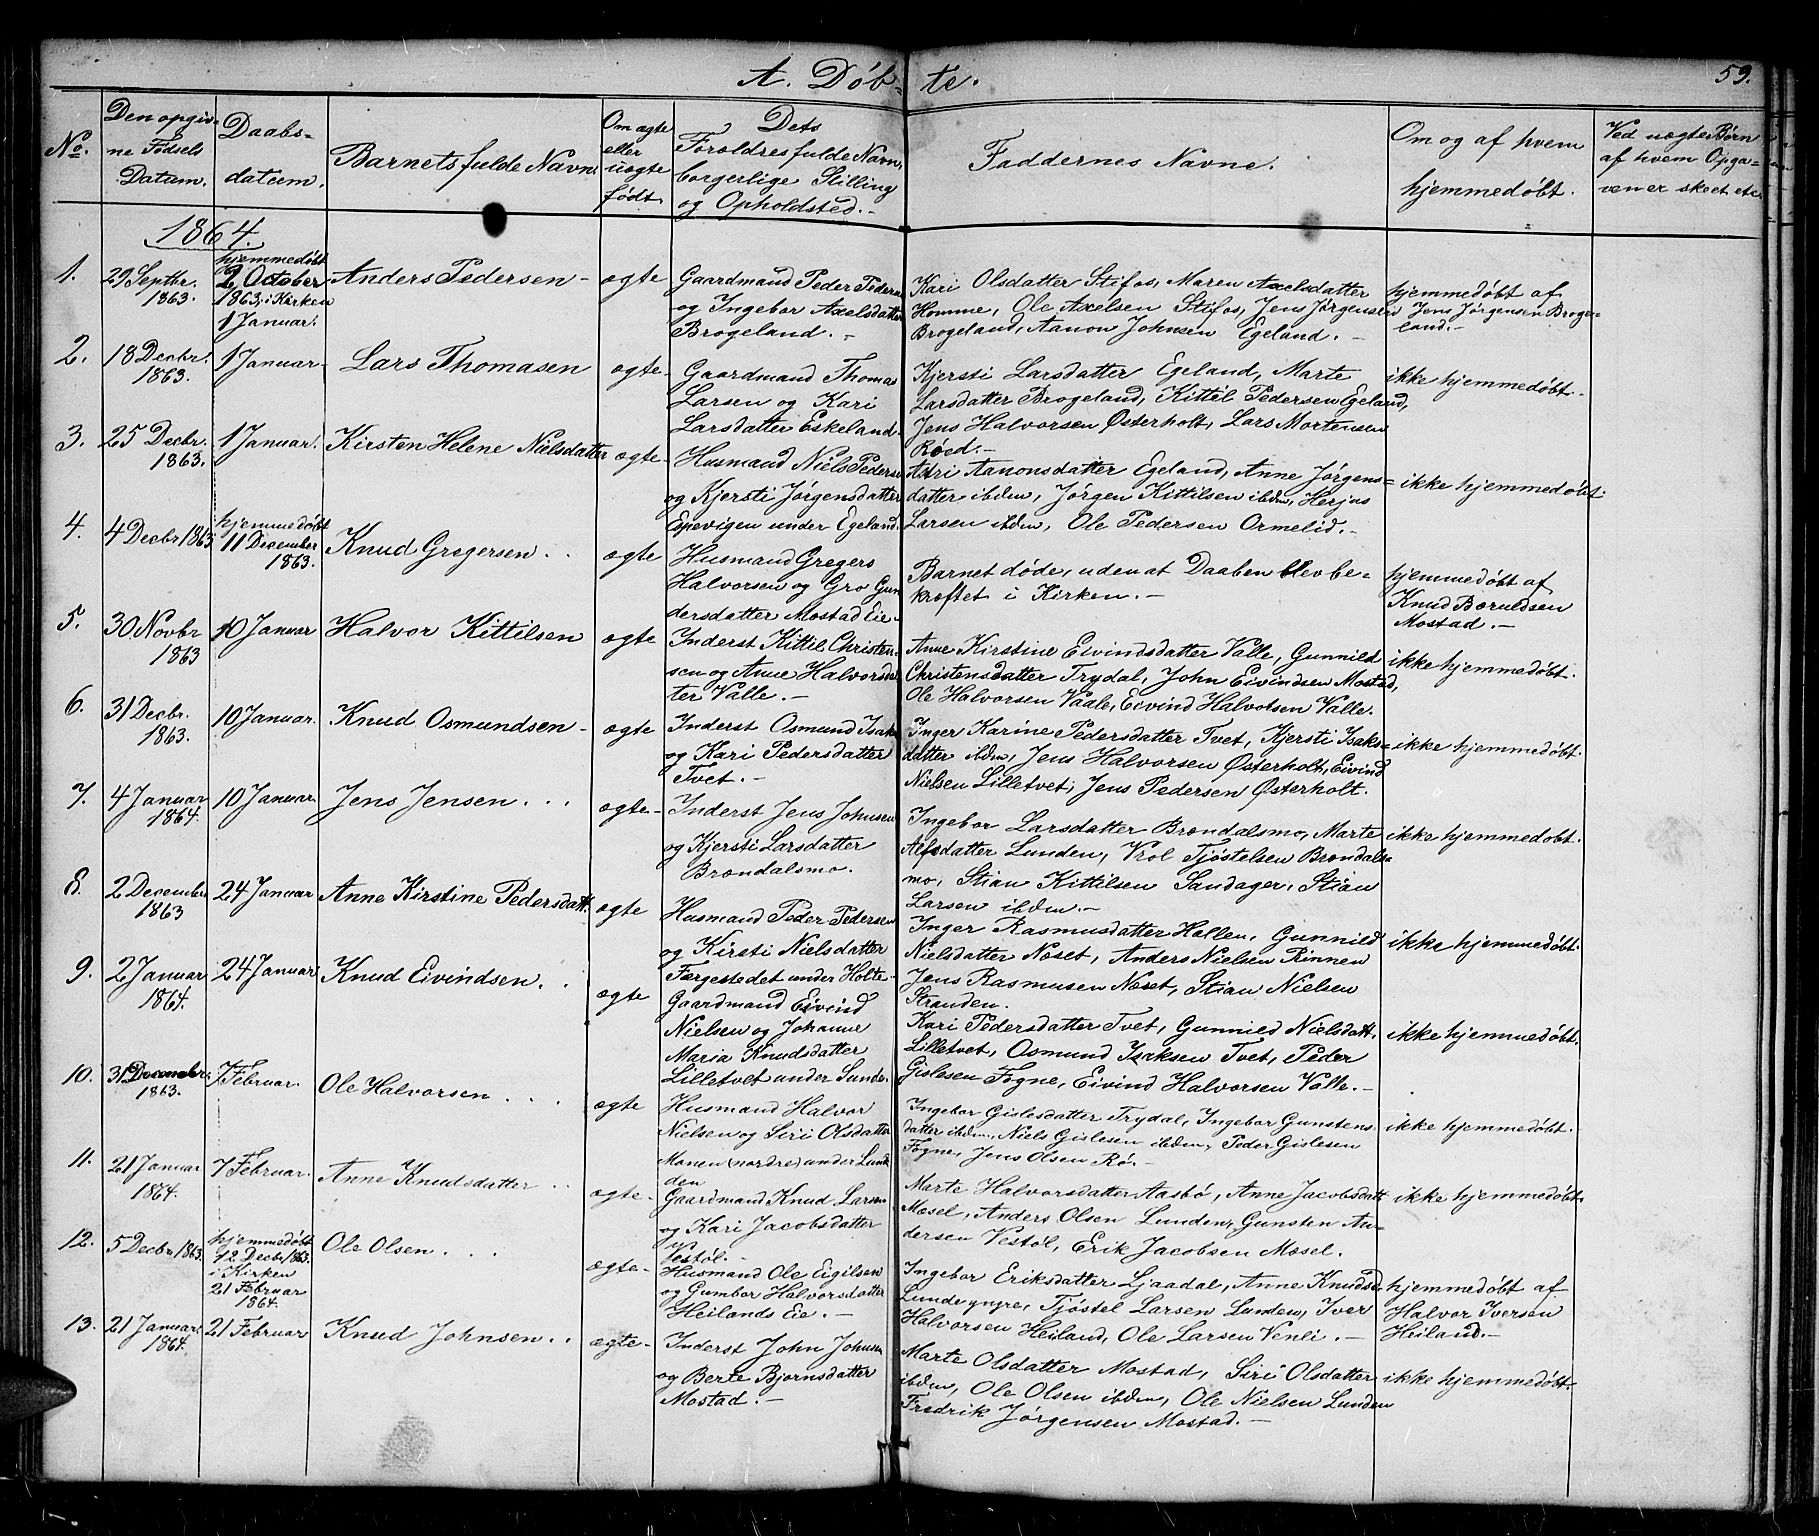 A. Døb- te. 59.
No. Den opgiv-
ne Fødsels
Datum. Daabs-
datum. Barnets fulde Navn Om ægte
eller
uægte
født. Dets
Forældres fulde Navn,
borgerlige Stilling
og Opholdsted.- Faddernes Navne. Om og af hvem
hjemmedøbt. Ved uægte Børn
af hvem Opga-
ven er skeet etc.
1864.
1. 29 Septbr.
1863. hjemmedøbt
2 October
1863, i Kirken
1 Januar. Anders Pedersen - ægte Gaardmand Peder Peders
og Ingebor Axelsdatter
Brogeland. - Kari Olsdatter Stifos, Maren Axelsdatter
Homme, Ole Axelsen Stifos, Jens Jørgensen
Brogeland, Aanon Johnsen Egeland. - hjemmedøbt af
Jens Jørgensen Broge-
land.-
2. 18 Decbr.
1863. 1 Januar. Lars Thomasen ægte- Gaardmand Thomas
Larsen og Kari
Larsdatter Eskeland. Kjersti Larsdatter Egeland, Marte
Larsdatter Brogeland, Kittil Pedersen Egeland,
Jens Halvorsen Østerholt, Lars Mortensen
Røed.- ikke hjemmedøbt.
3. 25 Decbr.
1863. 1 Januar. Kirsten Helene Nielsdatter ægte- Husmand Niels Peders
og Kjersti Jørgensdatter
Espevigen under Egeland. Adri Aanonsdatter Egeland, Anne Jørgens=
datter ibdm, Jørgen Kittilsen ibdm, Herjus
Larsen ibdm, Ole Pedersen Ormelid.- ikke hjemmedøbt.
4. 4 Decbr 1863 hjemmedøbt
11 December
1863. Knud Gregersen . . ægte Husmand Gregers
Halvorsen og Gro Gun
dersdatter Mostad Eie. Barnet døde, uden at Daaben blev be-
kræftet i Kirken.- hjemmedøbt af
Knud Boruldsen
Mostad.-
5. 30 Novbr
1863 10 Januar Halvor Kittilsen ægte Inderst Kittil Christen-
sen og Anne Halvorsdat
ter Valle.- Anne Kirstine Eivindsdatter Valle, Gunnild
Christensdatter Trydal, John Eivindsen Mostad,
Ole Halvorsen Vaale, Eivind Halvorsen Valle. ikke hjemmedøbt.
6. 31 Decbr.
1863. 10 Januar. Knud Osmundsen - ægte Inderst Osmund Isak
og Kari Pedersdatter
Tvet.- Inger Karine Pedersdatter Tvet, Kjersti Isaks=
datter ibdm, Jens Halvorsen Østerholt, Eivind
Nielsen Lilletvet, Jens Pedersen Østerholt. ikke hjemmedøbt.
7. 4 Januar
1864. 10 Januar. Jens Jensen . . . ægte- Inderst Jens Johnsen
og Kjersti Larsdatter
Brøndalsmo. Ingebor Larsdatter Brøndalsmo, Marte
Alfsdatter Lunden, Vrol Tjøstelsen Brøndals=
mo, Stian Kittilsen Sandager, Stian
Larsen ibdm.- ikke hjemmedøbt.
8. 2 December
1863 24 Januar Anne Kirstine Pedersdatt. ægte Husmand Peder Pedersen
og Kirsti Nielsdatter
Færgestedet under Holte- Inger Rasmusdatter Hallen, Gunnild
Nielsdatter Næset, Anders Nielsen Rinnen
Jens Rasmusen Næset, Stian Nielsen
Stranden. ikke hjemmedøbt.
9. 2 Januar
1864. 24 Januar Knud Eivindsen. . ægte Gaardmand Eivind
Nielsen og Johanne
Maria Knudsdatter
Lilletvet under Sunde. Kari Pedersdatter Tvet, Gunnild Nielsdatt.
Lilletvet, Osmund Isaksen Tvet, Peder
Gislesen Fogne, Eivind Halvorsen Valle.- ikke hjemmedøbt.
10. 31 December
1863. 7 Februar. Ole Halvorsen . . . ægte Husmand Halvor
Nielsen og Siri Olsdatter
Monen (nordre) under Lund
den Ingebor Gislesdatter Trydal, Ingebor Gunstens-
datter ibdm, Niels Gislesen ibdm, Peder Gislesen
Fogne, Jens Olsen Rø.- ikke hjemmedøbt.
11. 21 Januar
1864. 7 Februar. Anne Knudsdatter . . ægte- Gaardmand Knud Larsen
og Kari Jacobsdatter
Vestøl.- Marte Halvorsdatter Aasbø, Anne Jacobsdatt
Mæsel, Anders Olsen Lunden, Gunsten An-
dersen Vestøl, Erik Jacobsen Mæsel. ikke hjemmedøbt.
12. 5 Decbr 1863. hjemmedøbt
12 Decbr 1863.
i Kirken
21 Februar
1864. Ole Olsen . . . ægte- Husmand Ole Eigilsen
og Gumbor Halvorsdatter
Heilands Eie.- Ingebor Eriksdatter Ljaadal, Anne Knudsd.
Lunde yngre, Tjøstel Larsen Lunden, Iver
Halvorsen Heiland, Ole Larsen Venli.- hjemmedøbt af
Halvor Iversen
Heiland.-
13. 21 Januar
1864. 21 Februar Knud Johnsen . . ægte- Inderst John Johnsen
og Berte Bjørnsdatter
Mostad.- Marte Olsdatter Mostad, Siri Olsdatter
ibdm, Ole Olsen ibdm, Ole Nielsen Lunden
Fredrik Jørgensen Mostad.- ikke hjemmedøbt.